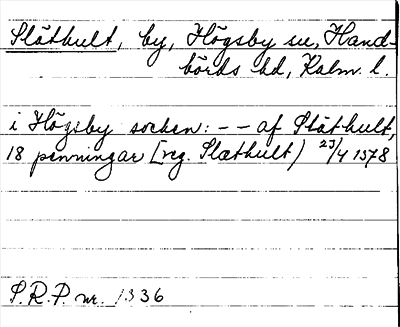 Släthult, by, Högsby sn, Hand-
börds hd, Kalm. l.
i Högsby socken: - - af Släthult,
18 penningar [reg. Slæthult) 23/4 1378
S.R.P. nr. 1336